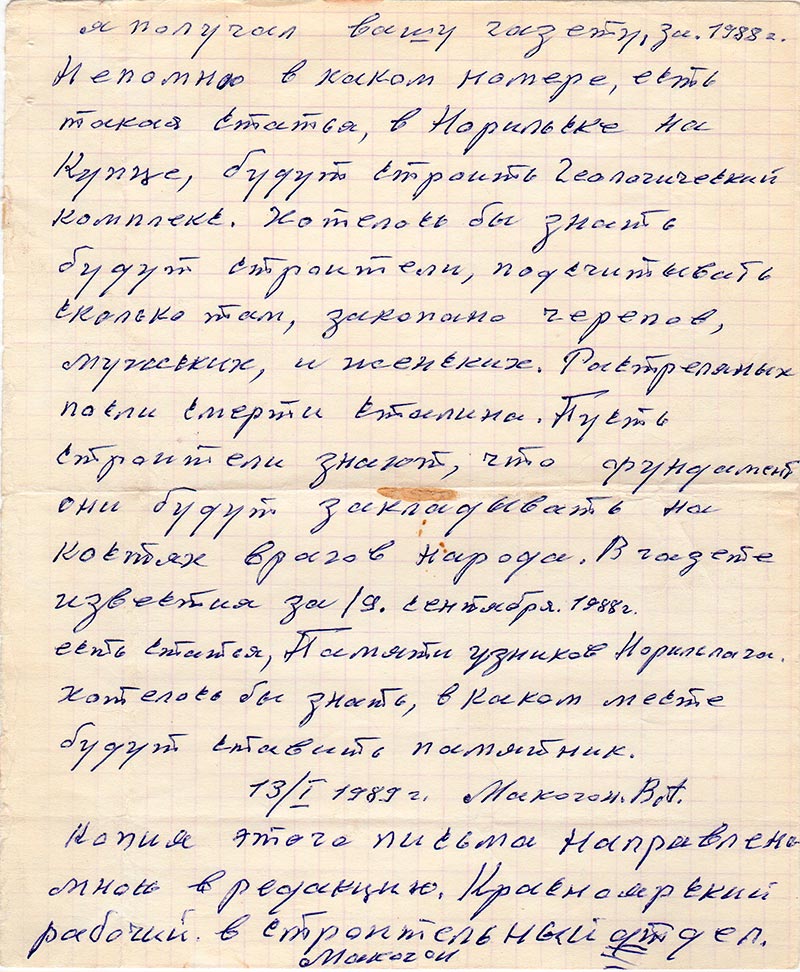 я получал вашу газету, за. 1988 г.
Непомню в каком номере, есть
такая статья, в Норильске на
Купце, будут строить Геологический
комплекс. Хотелось бы знать
будут строители, подсчитывать
сколько там, закопано черепов,
мужских, и женьских. Растреляных
посли смерти сталина. Пусть
строители знают, что фундамент
они будут закладывать на
костях врагов народа. В газете
известия за 19. сентября. 1988 г.
есть статья, Памяти узников Норильлага.
хотелось бы знать, в каком месте
будут ставить памятник.
13/I 1989 г. Макогон. В.А.
Копия этого письма направлено
мною в редакцию. Красноярский
рабочий. в строительный отдел.
Макогон